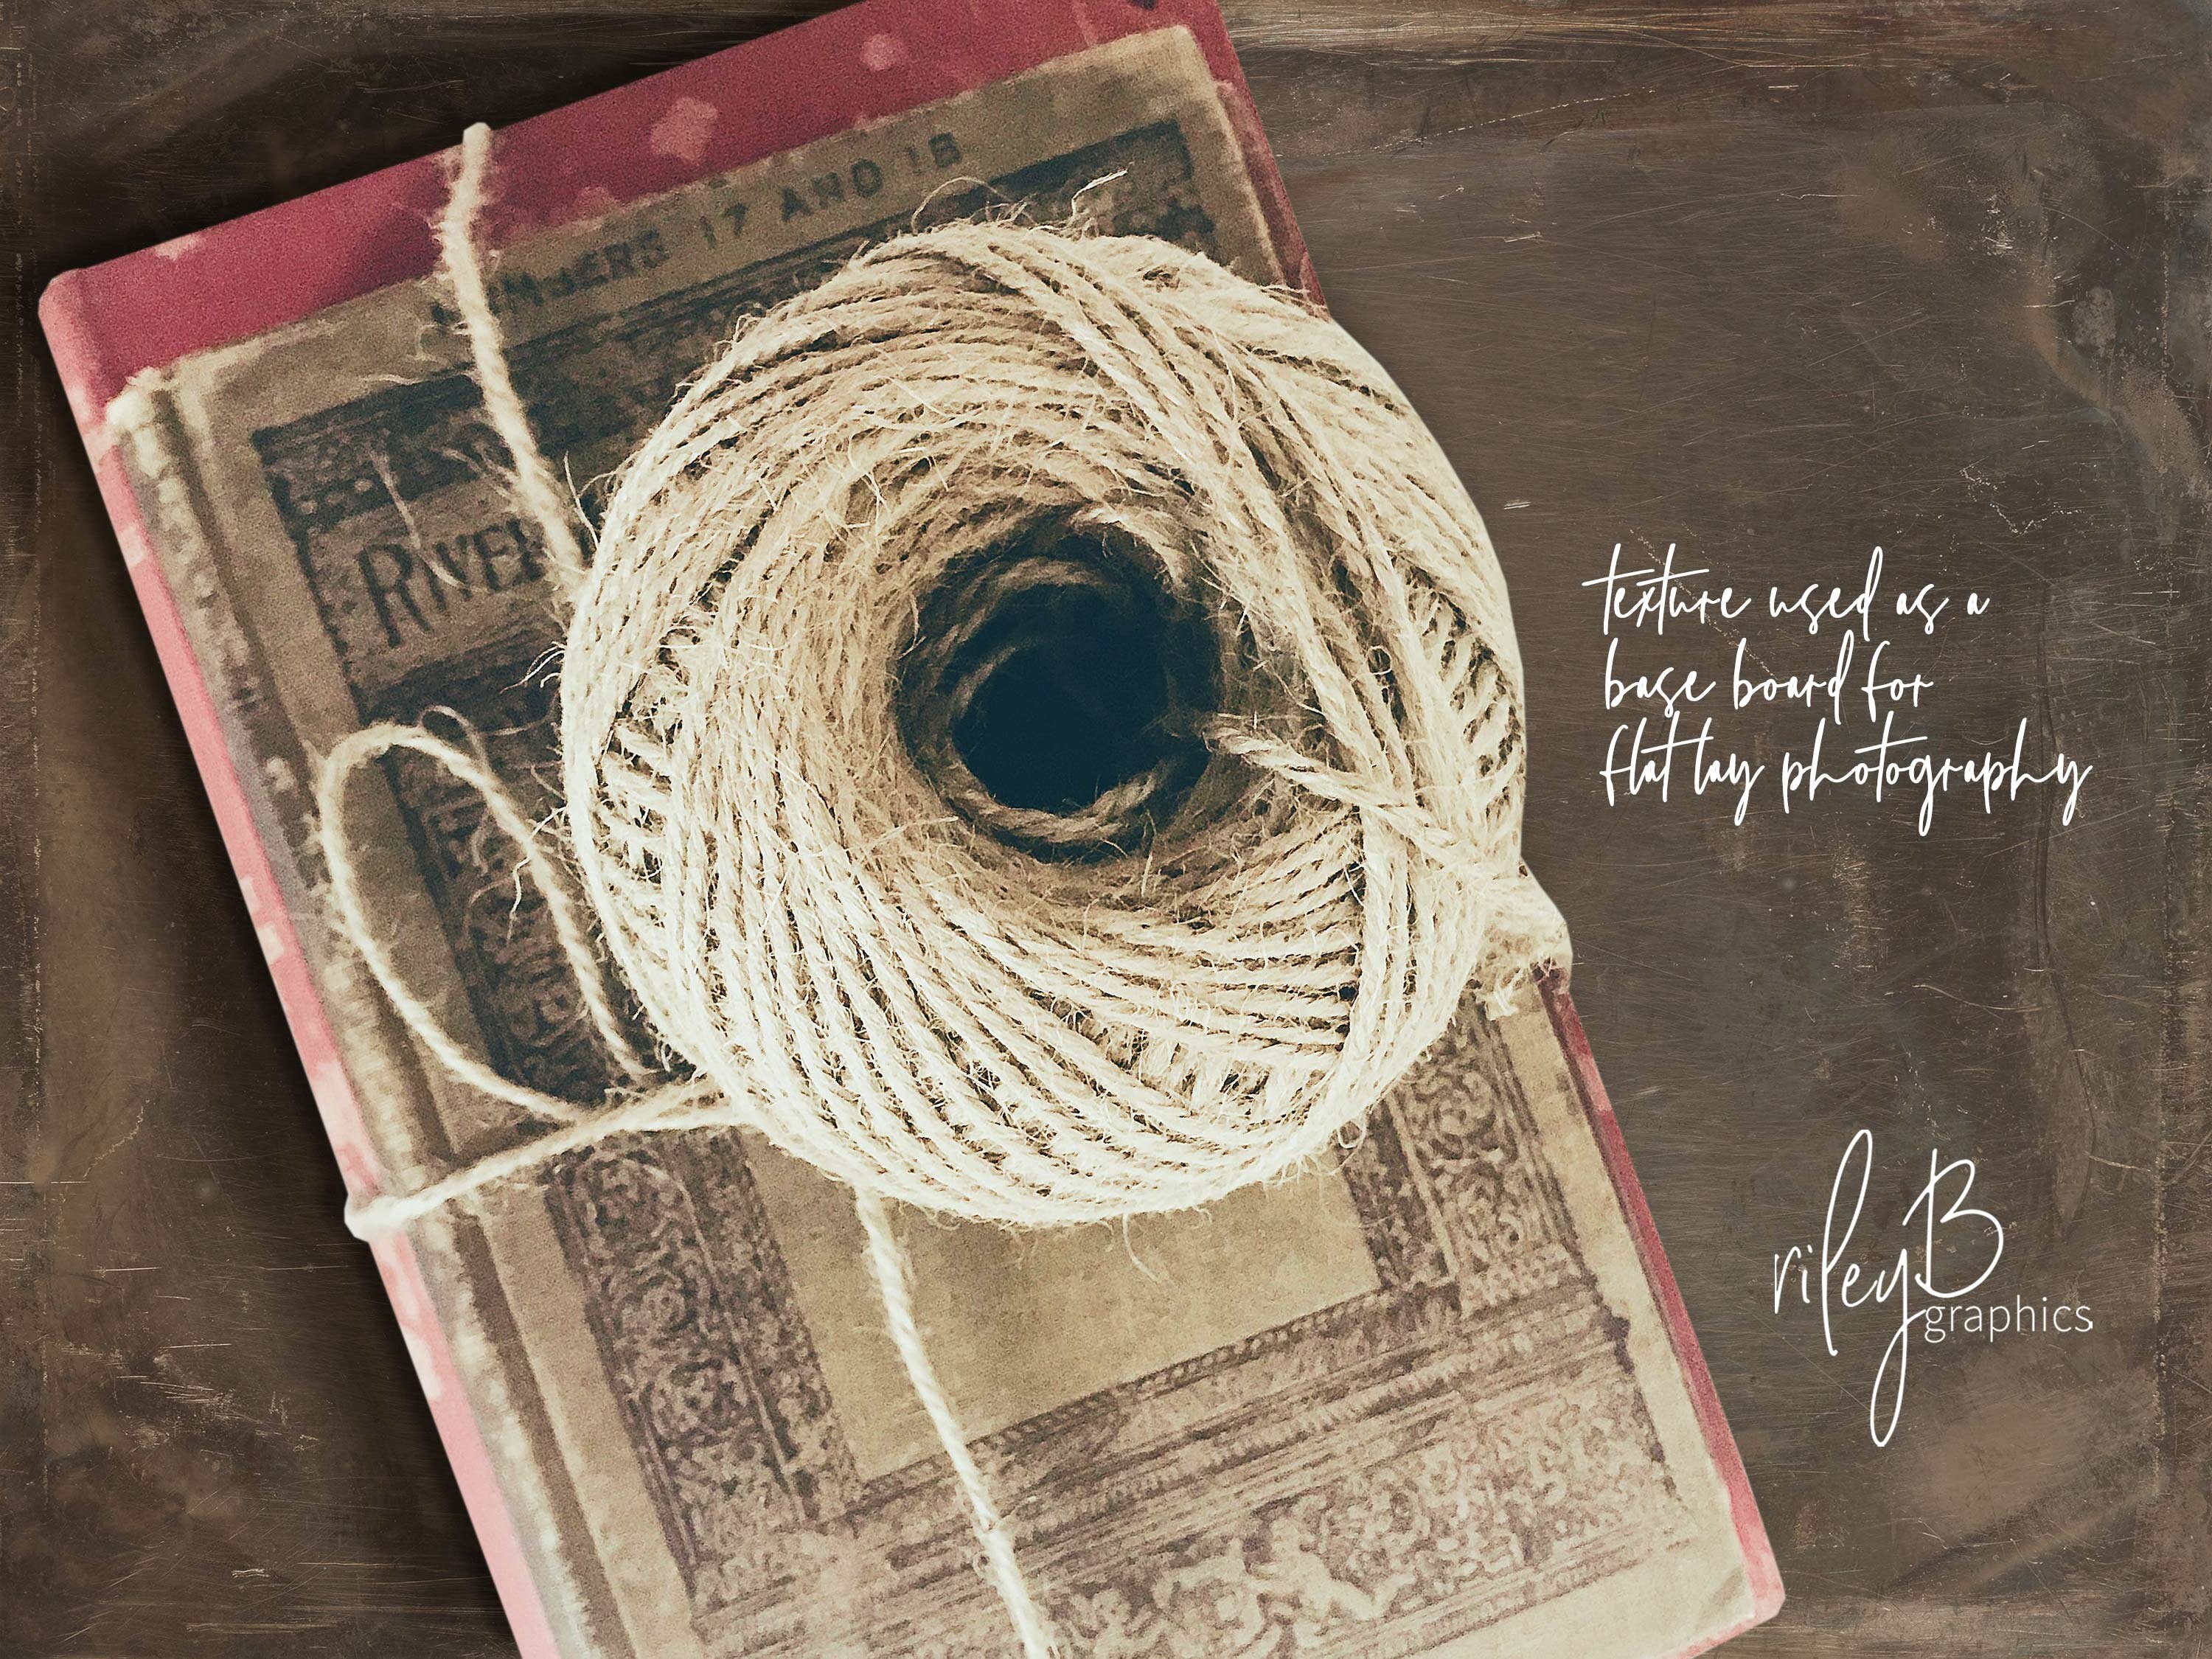 NUMBERS 17 AND 18
texture used as a
base board for
flat lay photography
rileyB
graphics